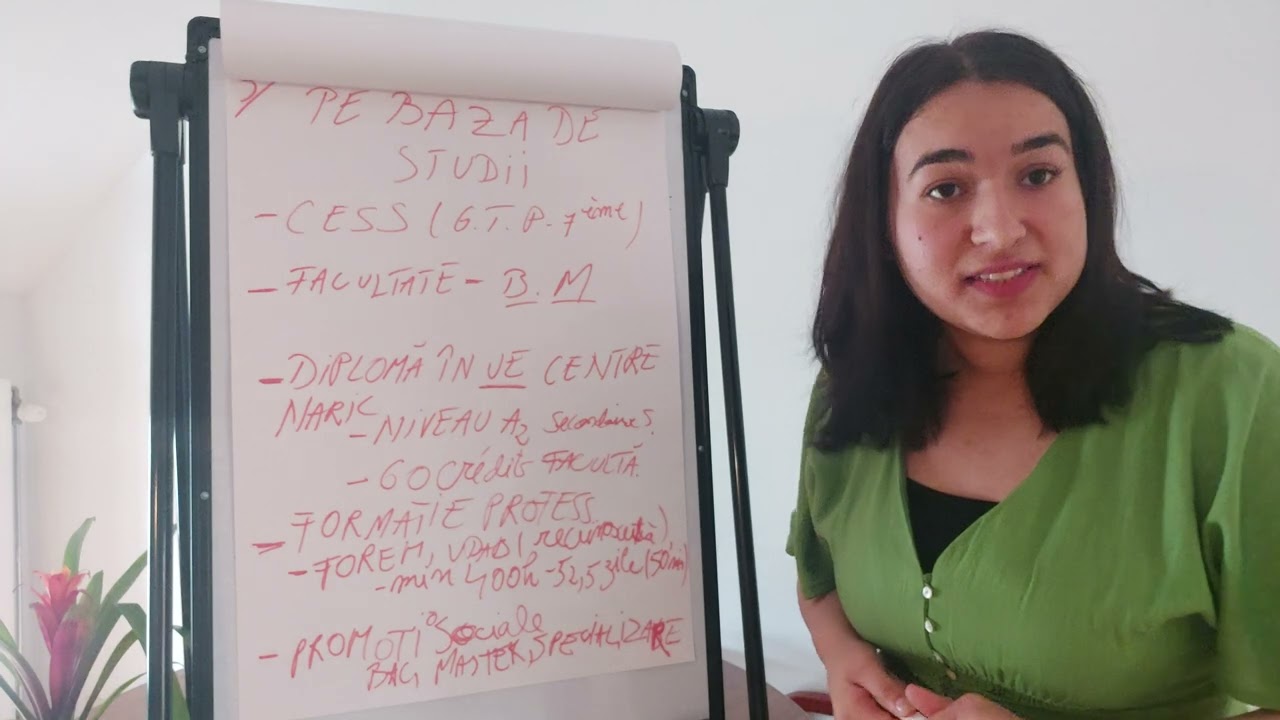 PE BAZA DE
STUDII
- CESS (G.T.P. 7ème)
- FACULTATE - B.M
- DIPLOMĂ ÎN UE CENTRE
NARIC
- NIVEAU A2 Secondaire S.
- 60 Crédits FACULTĂ.
- FORMAȚIE PROFESS
- FOREM, VDAB (recunoscută),
- min 400h - 52,5 zile (50 mi)
- PROMOTIO Sociale
BAC, MASTER, SPECIALIZARE